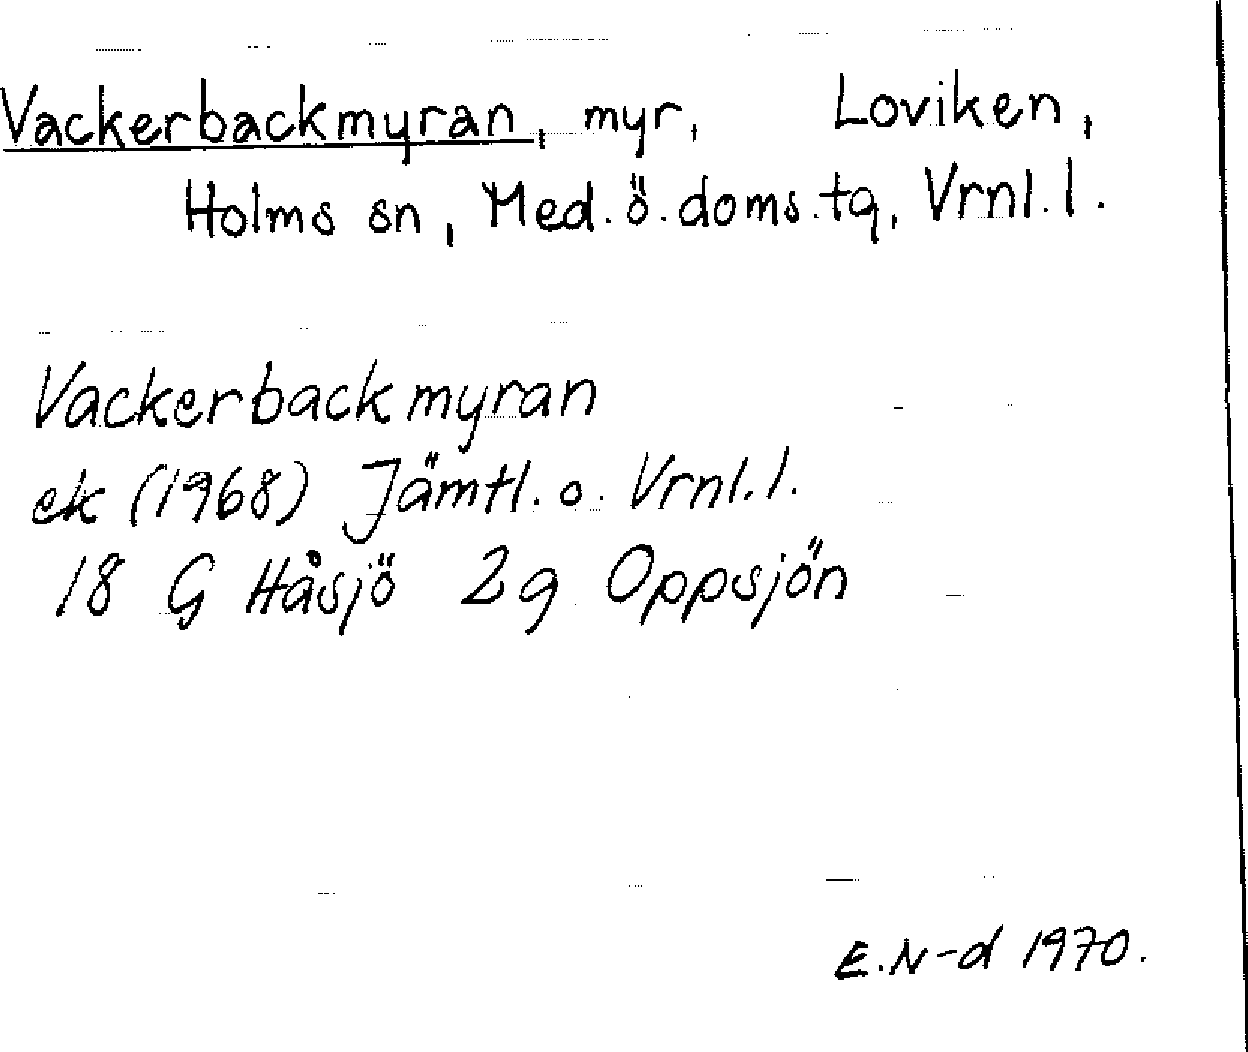 Vackerbackmyran, myr, Loviken,
Holms sn, Med. ö. doms. tg, Vrnl. l.
Vackerbackmyran
ek (1968) Jämtl. o. Vrnl. l.
18 G Håsjö 2g Oppsjön
E. N-d 1970.